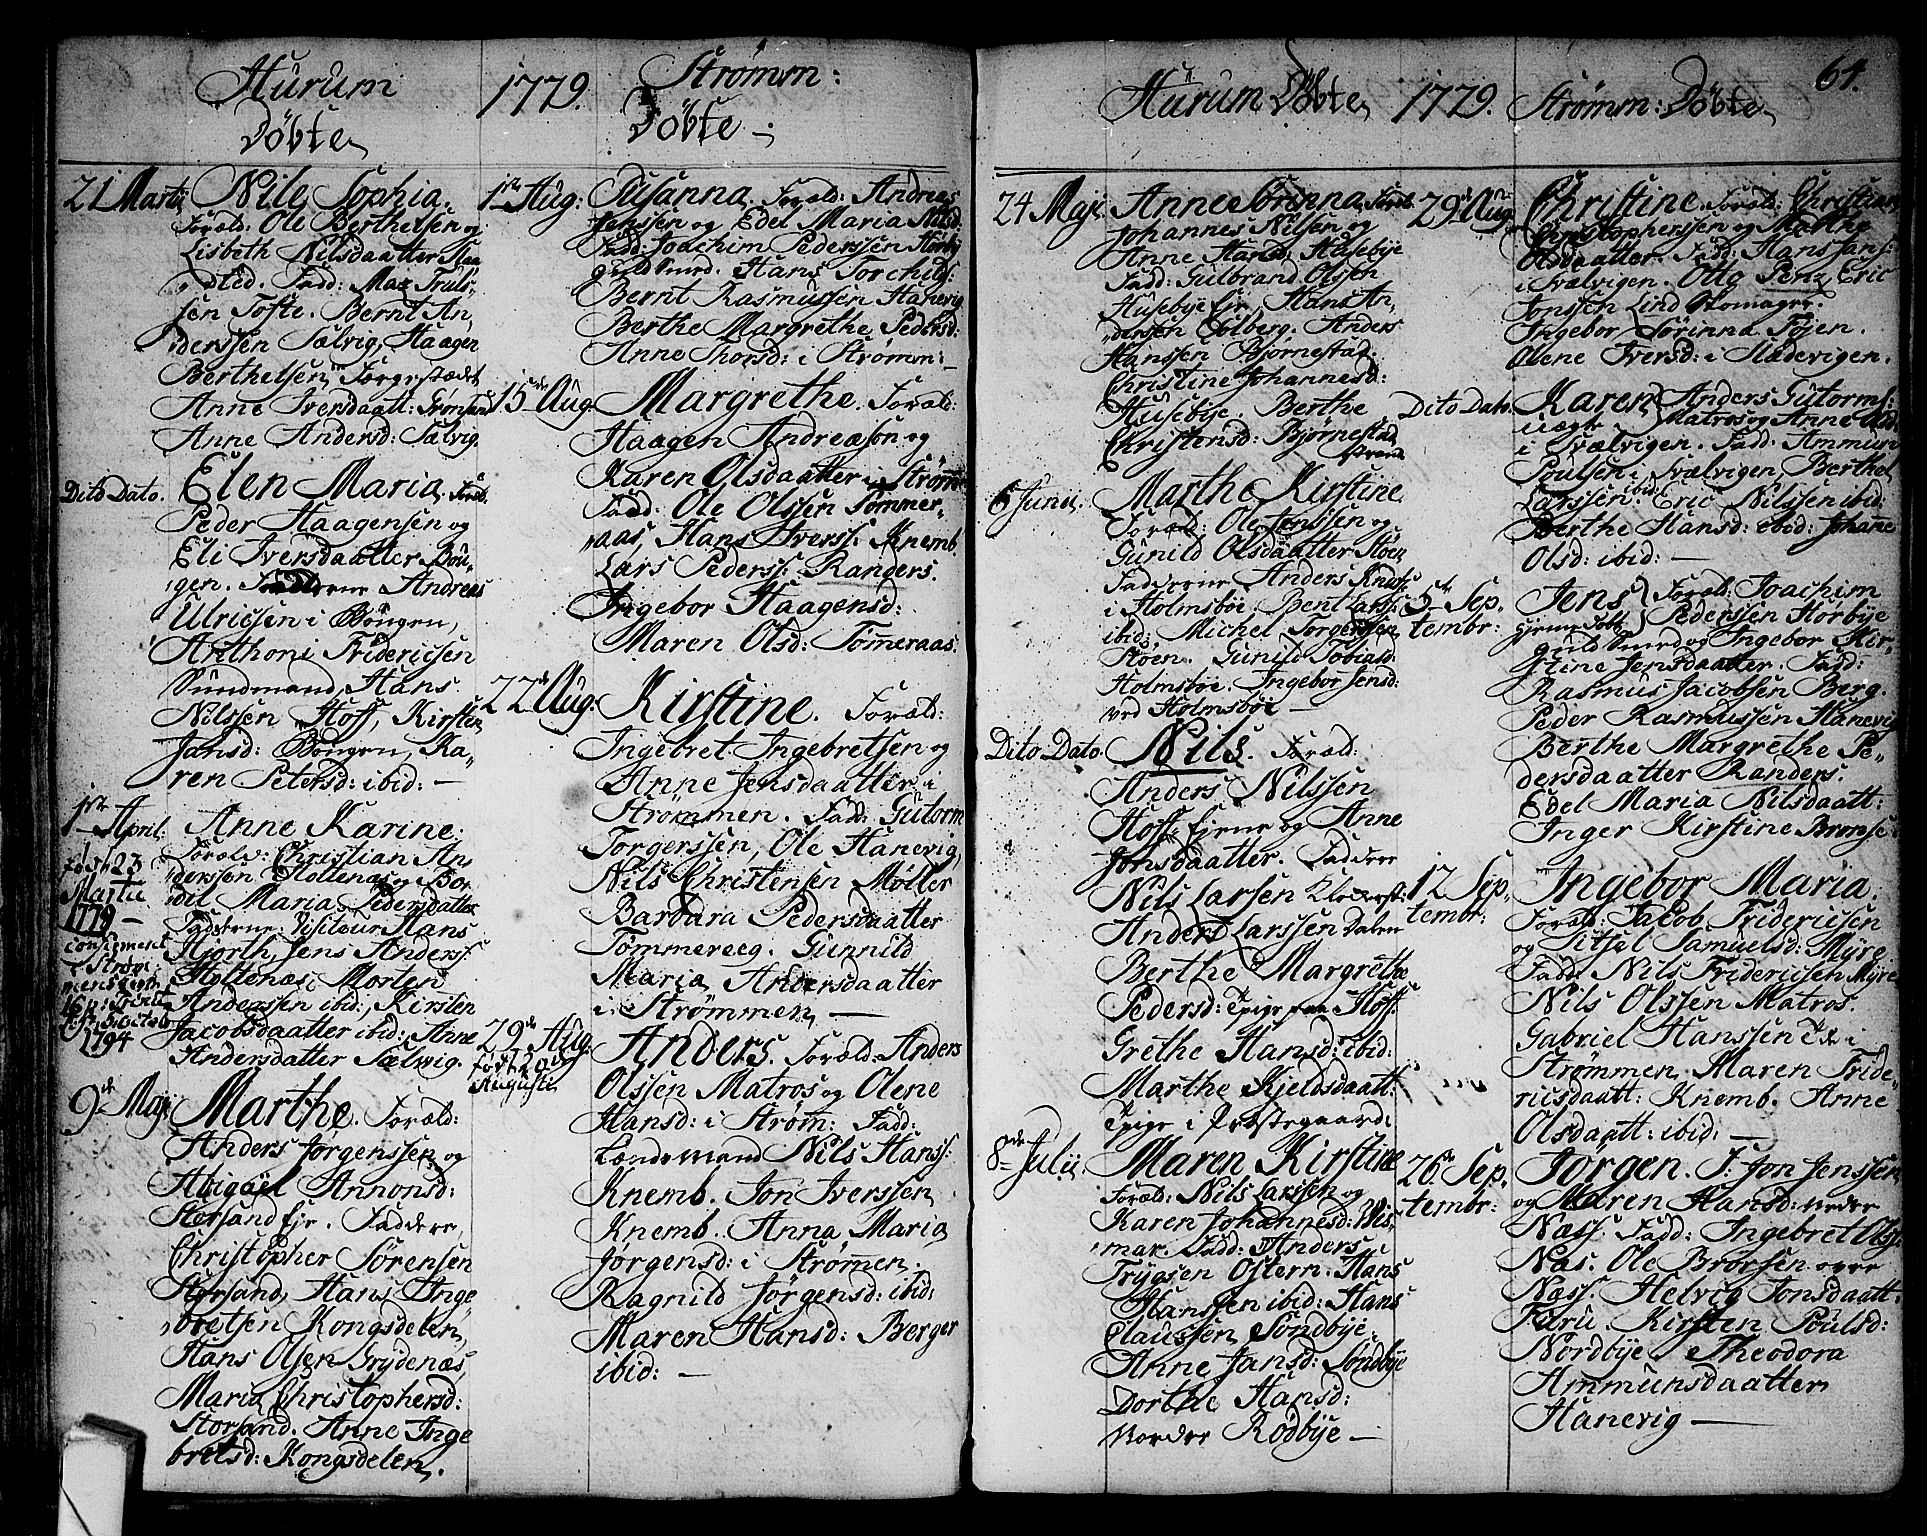 Hurum
Döbte
1779.
Strømm:
Döbte
21 Marti:
Nile Sophia.
Foræld: Ole Berthelsen og
Lisbeth Nilsdaatter
Fadd: Trüls
sen Tofte. Bernt An
derssen Sælvig, Haagen
Berthelsen,
Anne Iversdaatt: Grønsand
Anne Andersd: Sælvig.
Dito Dato.
Elen Maria, Foræld.
Peder Haagensen og
Eli Iversdaatter Bön
gen. Fadderne Andreas
Ulricsen i Böngen,
Anthoni Fridericsen
Sundmand, Hans
Nilssen Hoff, Kirsten
Jansd: Böngen, Ka
ren Petersd: ibid: —
1ste April:
föd 23
Martii
1779 —
1794
Anne Karine.
Foræld: Christian An
derssen Holtenæs og Bor
dil Maria Pedersdatter
Fadderne: Visiteur Hans
Hjorth, Jens Anderss:
Holtenæs, Morten
Anderssen ibid: Kirsten
Jacobsdaatter ibid: Anne
Andersdatter Sælvig.
9de Maji
Marthe. Foræld:
Anders Jørgenssen og
Abigäel Annonsd:
Storsand Eje. Faddere
Christopher Sørensen
Storsand, Hans Inge
bretsen Kongsdelen,
Hans Olsen Grydenæs,
Maria Christophersd:
Storsand. Anne Inge
bretsd: Kongsdelen.
1ste Aug:
Susanna. Foræld: Andreas
Jenssen og Edel Maria Nilsd:
Fadd: Joachim Pederssen Hörby
guldsmed. Hans Torchilds:
Bernt Rasmussen Hanevig
Berthe Margrethe Pedersd:
Anne Thorsd: i Strømm: —
15de Aug
Margrethe. Foræld:
Haagen Andreæsøn og
Karen Olsdaatter i Strømm
Fadd: Ole Olssen Tømmer
aas, Hans Iverss: Knemb.
Lars Pederss: Randers.
Ingebor Haagensd:
Maren Olsd: Tømeraas.
22de Aug:
Kirstine. Foræld:
Ingebret Ingebretsen og
Anne Jensdaatter i
Strømmen. Fadd: Gütorm
Torgerssen, Ole Hanevig,
Nils Christensen Møller
Barbara Pedersdaatter
Tømmereeg. Gunnild
Maria Andersdaatter
i Strømmen —
29de Aug.
født 20
Augusti
Anders. Foræld: Anders
Olssen Matros og Olene
Hansd: i Strøm: Fadd:
Lændsmand Nils Hanss:
Knemb. Jon Iverssen
Knemb. Anna Maria
Jørgensd: i Strømen.
Ragnild Jørgensd: ibid:
Maren Hansd: Berger
ibid: —
Hürum Döbte
1779.
Strømm: Döbte
64.
24 Maji
Anne Sörinna, Foræld
Johannes Nilsen og
Anne Hansd: Husebye
Fadd: Gulbrand Olsen
Husebye Eje, Hans An
dersen Solberg. Anders
Hanssen Björnestad.
Christine Johannesd:
Husebye. Berthe
Christensd: Björnestad
6 Junii.
Marthe Kirstine
Foræld: Ole Jenssen og
Gunild Olsdaatter Støen
Fadderne Anders Knutss
i Holmsböe. Bent Larss:
ibid: Michel Torgerssen
Støen. Gunild Tobiasd:
Holmsböe. Ingebor Jensd:
ved Holmsböe —
Dito Dato
Nils. Foræld:
Anders Nilssen
Hoffs Ejene og Anne
Jonsdaatter. Faddere
Nils Larsen
Anders Larssen Dalen
Berthe Margrethe
Pedersd: Pige paa Hoff:
Grethe Hansd: ibid:
Marthe Kjeldsdaatt:
Pige i Præstegaard:
8de Julii.
Maren Kirstine
Foræld: Nils Larssen og
Karen Johannesd: Wis
mar. Fadd: Anders
Trygsen Ostern: Hans
Hanssen ibid: Hans
Claussen Söndbye.
Anne Jansd: Söndbye
Dorthe Hansd:
Norder Rödbye —
29de Aug
Christine. Foræld: Christian
Christopherssen og Marthe
Olsdaatter. Fadd: Hans Jans:
i Svælvigen. Otto Penz, Eric
Jonssen Lind Skomager.
Ingebor Sörinna Föjen.
Olene Iversd: i Sælevigen.
Dito Dato
Karen
Anders Gütorms:
Matros og Anne Olsd:
i Svælvigen. Fadd: Ammun
Poülsen i Svælvigen, Berthel
Larssen ibid: Eric Nilssen ibid:
Berthe Hansd: ibid: Johane
Olsd: ibid: —
5te Sep
tembr:
Jens
hjemedöbt
Foræld: Joachim
Pederssen Hörbye
guldsmed og Ingebor Kir
stine Jensdaatter. Fadd:
Rasmus Jacobsen Berg.
Peder Rasmussen Hanevig
Berthe Margrethe Pe
dersdaatter Randers.
Edel Maria Nilsdaatt:
Inger Kirstine
12 Sep
tembr:
Ingebor Maria.
Foræld: Jacob Fridericsen
og Sitsel Samuelsd: Myre
Fadd: Nils Fridericsen Myre
Nils Olssen Matros.
Gabriel Hanssen i
Strømmen. Maren Fride
ricsdaatt: Knemb. Anne
Olsdaatt: ibid: —
26de Sep
tembr:
Jörgen. F: Jon Jenssen
og Maren Hansd: neder
Næss. Fadd: Ingebret Olss:
Næs. Ole Brorsen øvre
Næss. Helvig Jonsdaatt:
Fürü. Kirsten Poülsd:
Nordbye. Theodora
Ammunsdaatter
Hanevig —